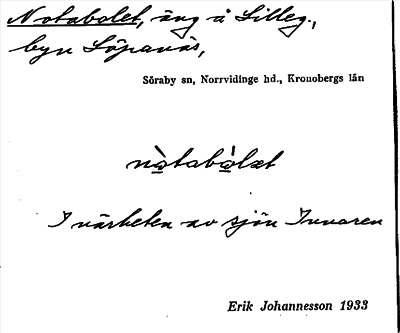 Notabolet, äng å Lilleg.,
byn Löpanäs,
Söraby sn, Norrvidinge hd., Kronobergs län
nò̲tabò̲lət
I närheten av sjön Innaren
Erik Johannesson 1933